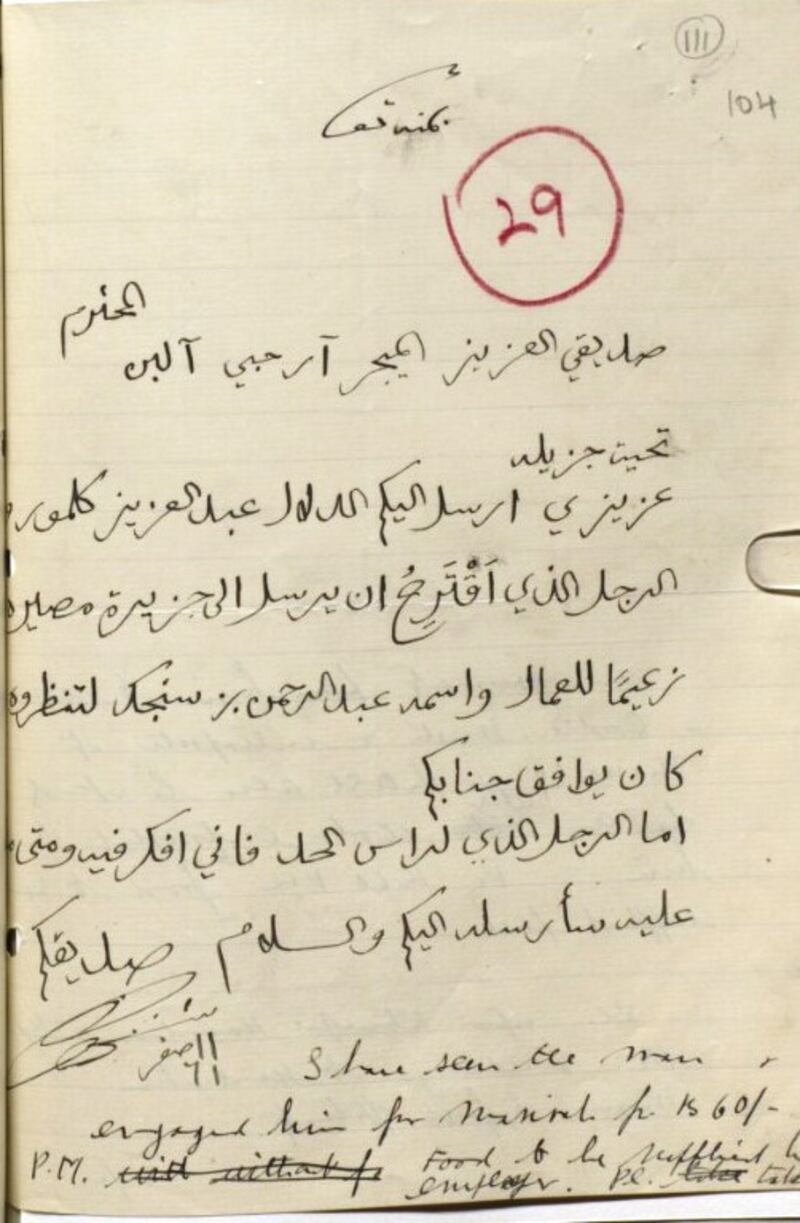 111
104
بمنه تعالى
29
المحترم
صديقي العزيز الميجر آر جيي آلبن
تحيت جزيله
عزيزي ارسل اليكم الدلال عبد العزيز
الرجل الذي اَقْتَرِحُ ان يرسل الى جزيرة مصيره
زعيمًا للعمال واسمه عبد الرحمن بن سنجك لتنظروه
كان يوافق جنابكم
اما الرجل الذي لراس الحد فاني افكر فيه ومتى
عليه سأرسله اليكم والسلام صديقكم
11 صفر
61
I have seen the man
engaged him for Masirah for Rs 60/-
P.M. with without f Food to be supplied by
employer. Pl. take